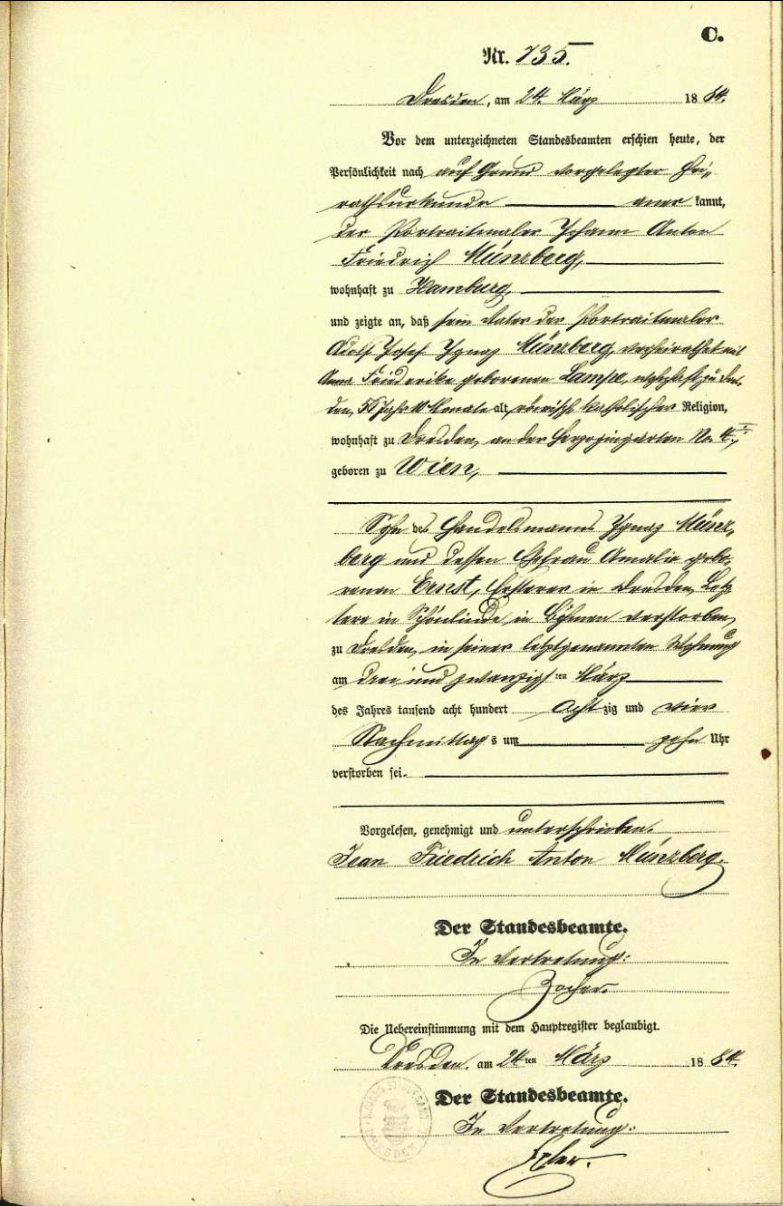 C.
Nr. 735.
Dresden, am 24. März 1884.
Vor dem unterzeichneten Standesbeamten erschien heute, der
Persönlichkeit nach auf Grund vorgelegter Hei-
rathsurkunde anerkannt,
der Portraitmaler Johann Anton
Friedrich Münzberg,
wohnhaft zu Hamburg,
und zeigte an, daß sein Vater der Portraitmaler
Adolf Josef Ignaz Münzberg, verheirathet mit
Anna Friederike geborenen Lampe, wohnhaft zu Dres-
den, Jahr Monate alt, römisch katholischer Religion,
wohnhaft zu Dresden, an der Herzogingarten No. 4,
geboren zu Wien,
Sohn des Handelsmanns Ignaz Münz-
berg und dessen Ehefrau Amalie gebo-
renen Ernst, Ersterer in Dresden, Letz-
tere in Schönlinde in Böhmen verstorben,
zu Dresden, in seiner letztgenannten Wohnung
am drei und zwanzigsten März
des Jahres tausend acht hundert achtzig und vier
Nachmittags um zehn Uhr
verstorben sei.
Vorgelesen, genehmigt und unterschrieben.
Jean Friedrich Anton Münzberg.
Der Standesbeamte.
In Vertretung:
Zocher.
Die Uebereinstimmung mit dem Hauptregister beglaubigt.
Dresden, am 24ten März 1884.
Der Standesbeamte.
In Vertretung: